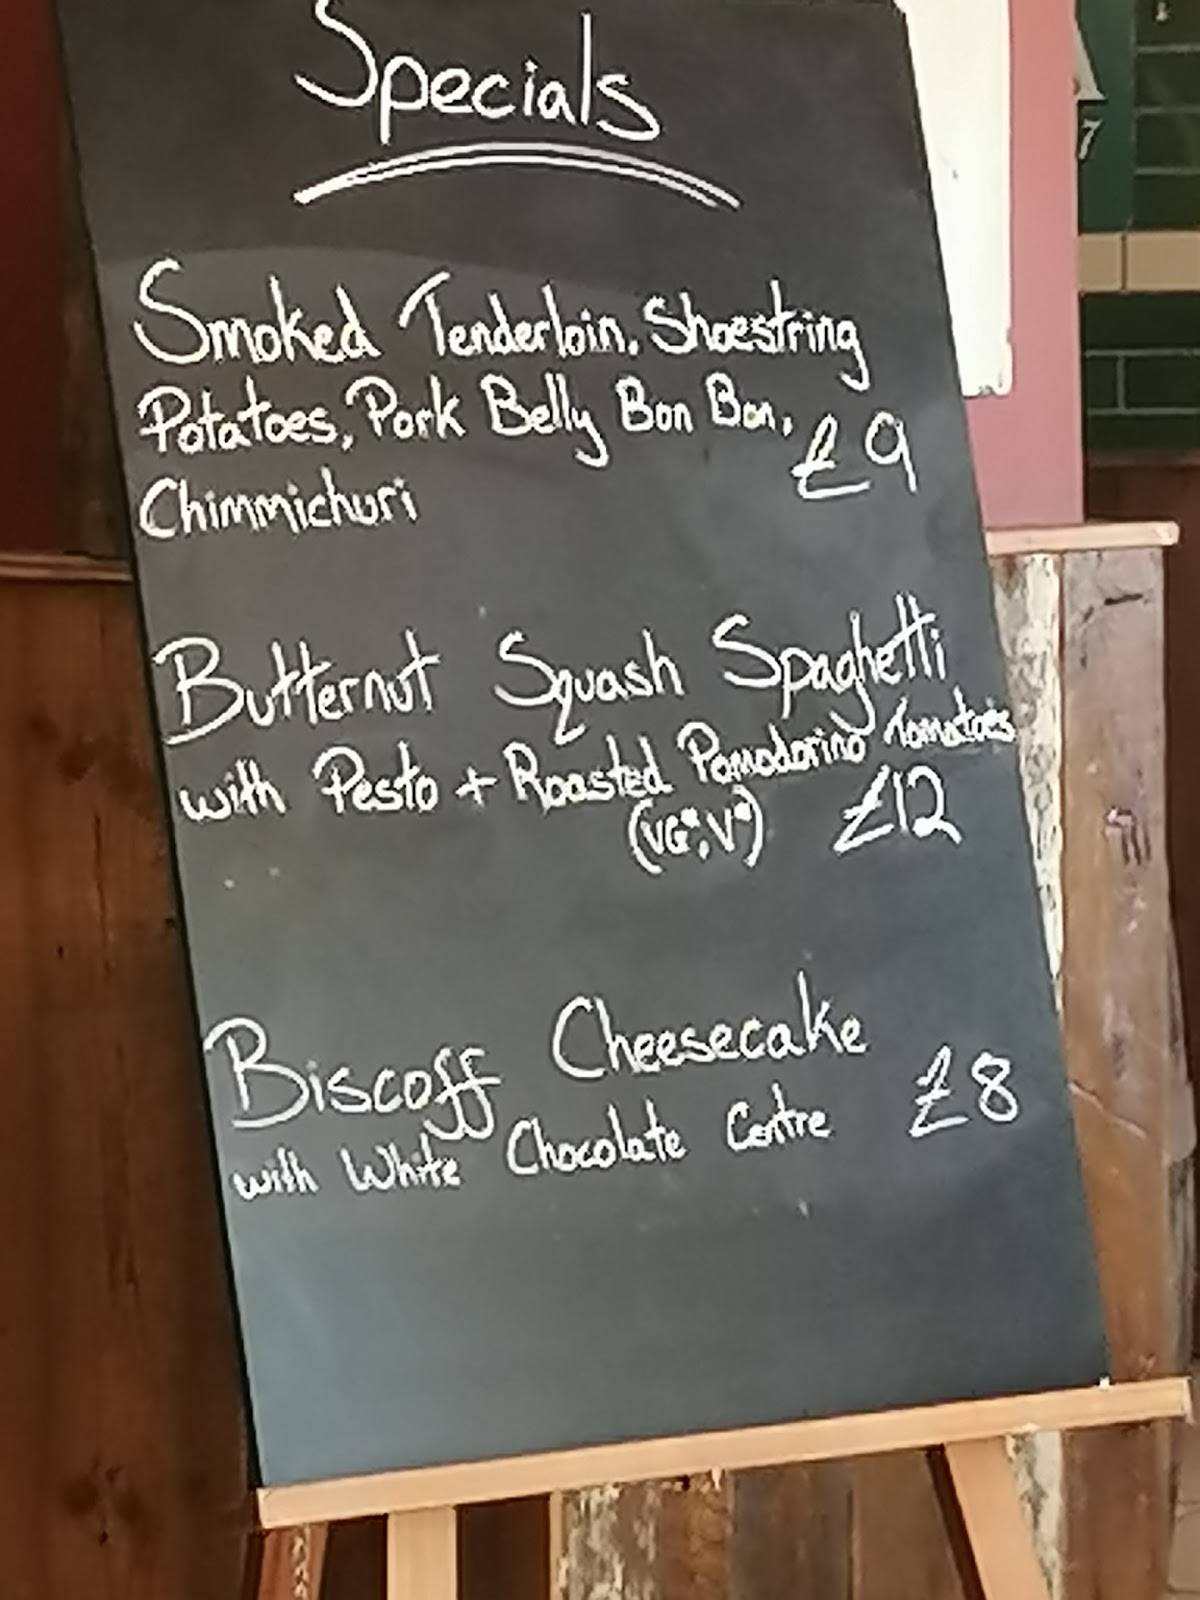 Specials
Smoked Tenderloin, Shoestring
Potatoes, Pork Belly Bon Bon,
£9
Chimmichuri
Butternut Squash Spaghetti
with Pesto + Roasted Pomodorino Tomatoes
(VG*, V*) £12
Biscoff Cheesecake
£8
with White Chocolate Centre
7